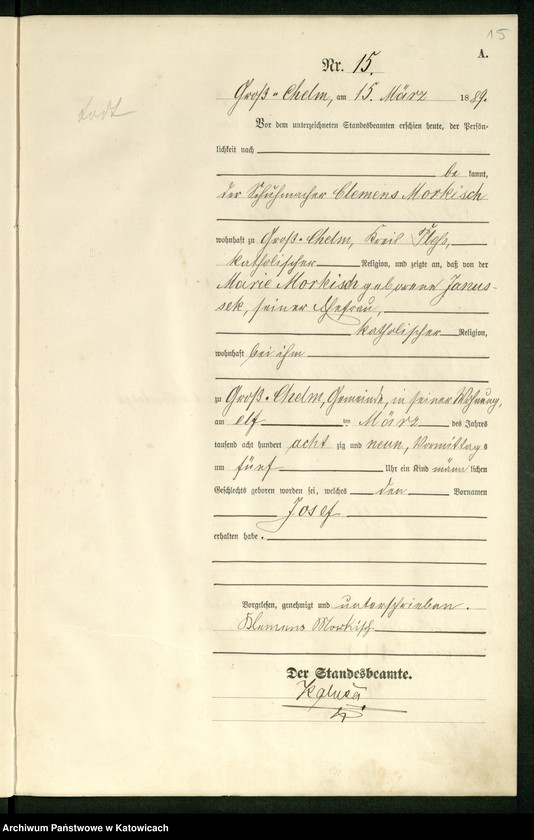 15
A.
Nr. 15.
todt
Groß-Chelm, am 15. März 1889.
Vor dem unterzeichneten Standesbeamten erschien heute, der Persön-
lichkeit nach
be kannt,
der Schuhmacher Clemens Morkisch
wohnhaft zu Groß-Chelm, Kreis Pleß,
katholischer Religion, und zeigte an, daß von der
Marie Morkisch geborene Janus-
sek, seiner Ehefrau,
katholischer Religion,
wohnhaft bei ihm
zu Groß-Chelm, Gemeinde, in seiner Wohnung,
am elf ten März des Jahres
tausend acht hundert acht zig und neun, Vormittags
um fünf Uhr ein Kind männ lichen
Geschlechts geboren worden sei, welches den Vornamen
Josef
erhalten habe.
Vorgelesen, genehmigt und unterschrieben.
Klemens Morkisch
Der Standesbeamte.
Archiwum Państwowe w Katowicach